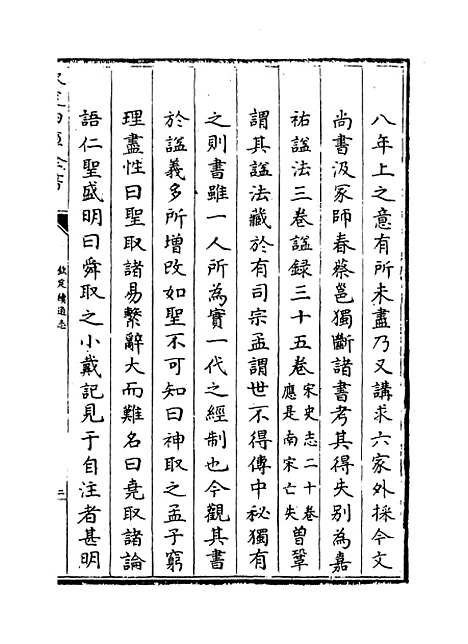 八年上之意有所未盡乃又講求六家外採今文
尚書汲冢師春蔡邕獨斷諸書考其得失别為嘉
祐諡法三卷諡録三十五卷宋史志二十卷應是南宋亡失曾鞏
謂其諡法藏於有司宗孟謂世不得傳中秘獨有
之則書雖一人所為實一代之經制也今觀其書
於諡義多所增改如聖不可知曰神取之孟子窮
理盡性曰聖取諸易繫辭大而難名曰堯取諸論
語仁聖盛明曰舜取之小戴記見于自注者甚明
欽定續通志